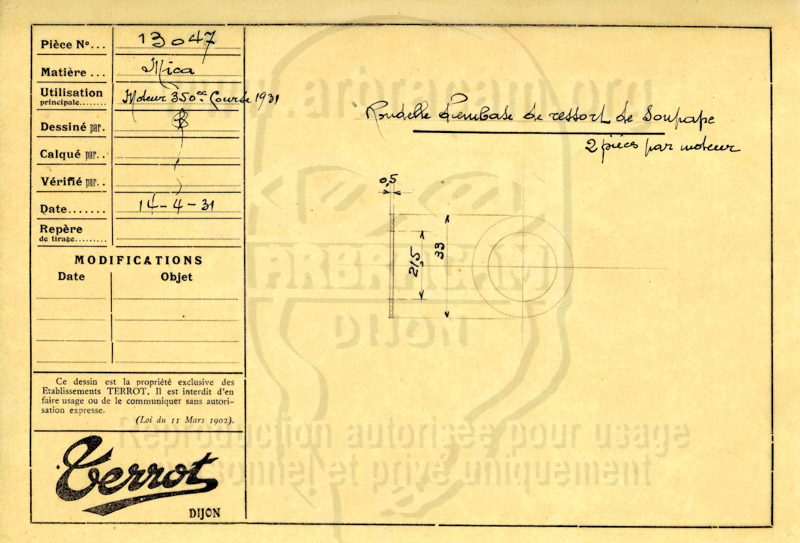 Pièce N°... 13047
Matière ... Mica
Utilisation
principale....... Moteur 350cc Course 1931
Dessiné par.
Calqué par..
Vérifié par..
Date....... 14-4-31
Repère
de tirage.........
MODIFICATIONS
Date Objet
Ce dessin est la propriété exclusive des
Etablissements TERROT. Il est interdit d'en
faire usage ou de le communiquer sans autori-
sation expresse.
(Loi du 11 Mars 1902).
Terrot
DIJON
Rondelle d'embase de ressort de Soupape
2 pièces par moteur
0,5
21,5
33
www.arbracam.org
ARBRACAM
DIJON
Reproduction autorisée pour usage
personnel et privé uniquement